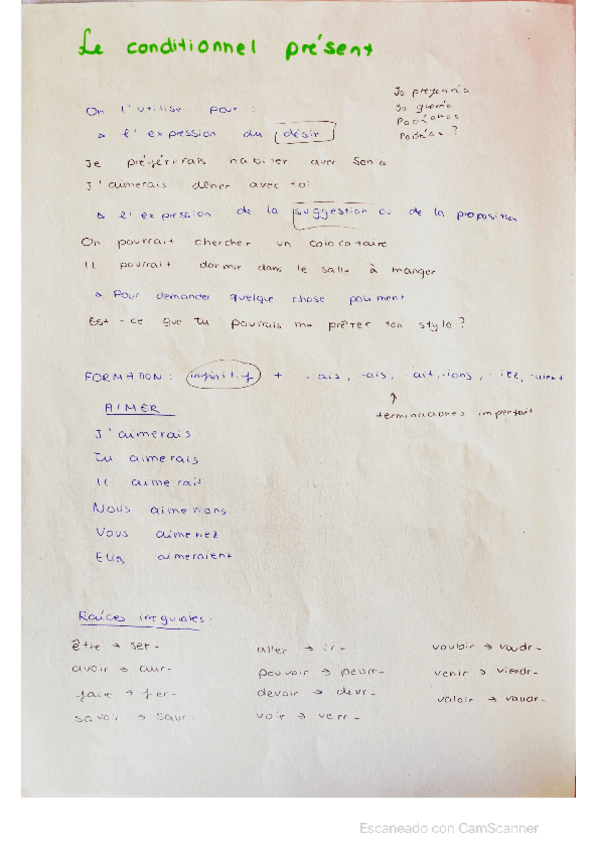 Le conditionnel présent
Jo preferiría
Jo querría
Podríamos
Podrías ?
On l'utilise pour :
▹ l'expression du désir
Je préférerais habiter avec Sonia
J'aimerais dîner avec toi
▹ l'expression de la suggestion ou de la proposition
On pourrait chercher un colocataire
Il pourrait dormir dans le salle à manger
▹ Pour demander quelque chose poliment
Est-ce que tu pourrais me prêter ton stylo ?
FORMATION : infinitif + -ais, -ais, -ait, -ions, -iez, -aient
↑
terminaciones imperfait
AIMER
J'aimerais
Tu aimerais
Il aimerait
Nous aimerions
Vous aimeriez
Elles aimeraient
Raíces irregulares:
être → ser- aller → ir- vouloir → voudr-
avoir → aur- pouvoir → pourr- venir → viendr-
faire → fer- devoir → devr- valoir → vaudr-
savoir → saur- voir → verr-
Escaneado con CamScanner